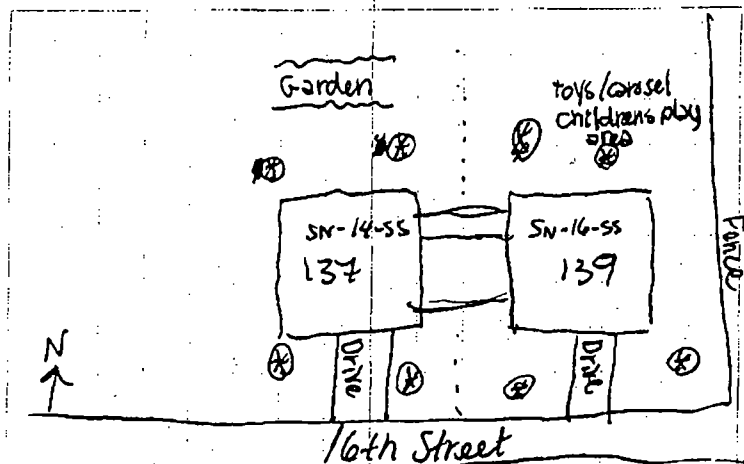 Garden
toys/carosel
childrens play
area
SN-14-SS
137
SN-16-SS
139
Fence
Drive
Drive
N
16th Street